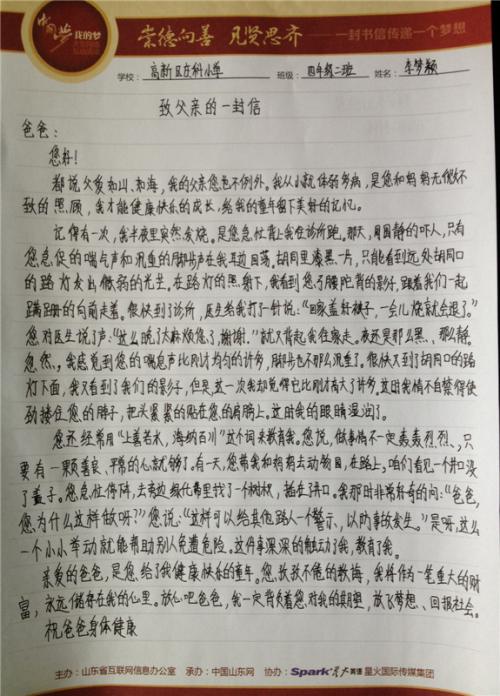 中国梦 我的梦
崇德向善 见贤思齐
一封书信传递一个梦想
学校：高新区东科小学 班级：四年级二班 姓名：李梦颖
致父亲的一封信
爸爸：
您好！
都说父爱如山、如海，我的父亲您也不例外。我从小就体弱多病，是您和妈妈无微不
致的照顾，我才能健康快乐的成长，给我的童年留下美好的记忆。
记得有一次，我半夜里突然发烧。是您急忙背上我往诊所跑。那天，周围静的吓人，只有
您急促的喘气声和沉重的脚步声在我耳边回荡。胡同里漆黑一片，只能看到远处胡同口
的路灯发出微弱的光芒。在路灯的照射下，我看到您弓腰驼背的影子，跟着我们一起
蹒跚的向前走着。很快到了诊所，医生给我打了一针说：“回家盖好被子，一会儿烧就会退了。”
您对医生说了声：“这么晚了太麻烦您了，谢谢。”就又背起我往家走。夜还是那么黑、那么静。
忽然，我感觉到您的喘息声比刚才均匀的许多，脚步也不那么沉重了。很快又到了胡同口的路
灯下面，我又看到了我们的影子，但是，这一次我却觉得它比刚才高大了许多。这时我情不自禁得使
劲搂住您的脖子，把头紧紧的贴在您的肩膀上。这时我的眼睛湿润了。
您还经常用“上善若水，海纳百川”这个词来教育我。您说，做事情不一定轰轰烈烈、，只
要有一颗善良、平常的心就够了。有一天，您带我和妈妈去动物园，在路上，咱们看见一个井口没
了盖子。您急忙停车，去旁边绿化带里找了一个树杈，插在了井口。我那时非常好奇的问：“爸爸，
您为什么这样做呀？”您说：“这样可以给其他路人一个警示，以防事故发生。”是呀，这么
一个小小举动就能帮助别人免遭危险。这件事深深的触动了我，教育了我。
亲爱的爸爸，是您给了我健康快乐的童年。您孜孜不倦的教诲，我将作为一笔重大的财
富，永远储存在我的心里。放心吧爸爸，我一定背负着您对我的期望，放飞梦想、回报社会。
祝爸爸身体健康
主办：山东省互联网信息办公室 承办：中国山东网 协办：Spark 星火英语 星火国际传媒集团